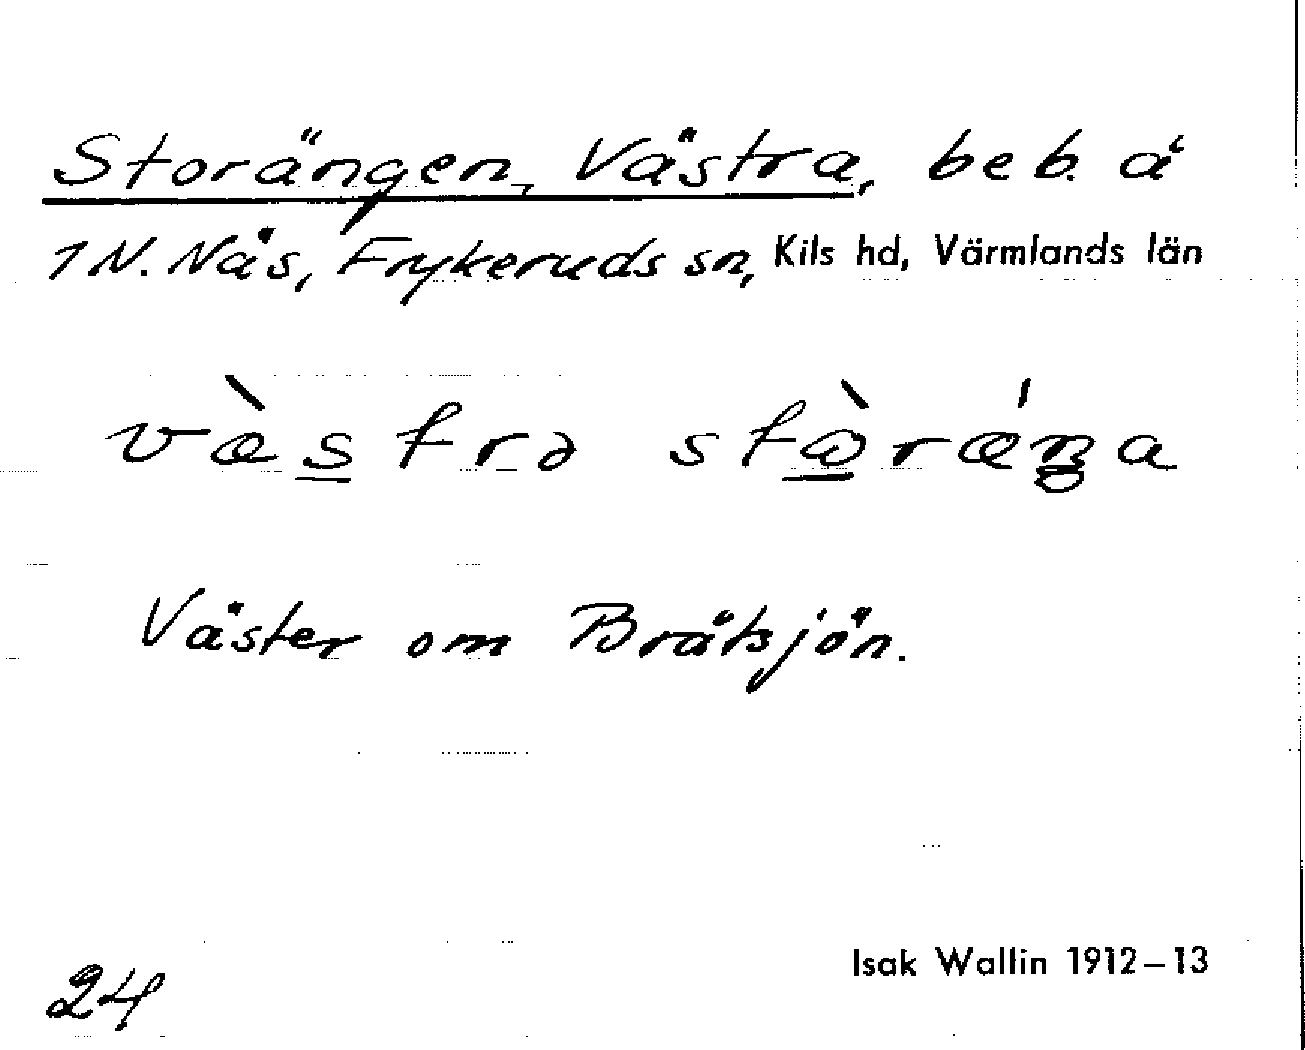 Storängen, Västra, beb. å
1 N. Näs, Frykeruds sn, Kils hd, Värmlands län
Väster om Bråtsjön.
Isak Wallin 1912–13
24